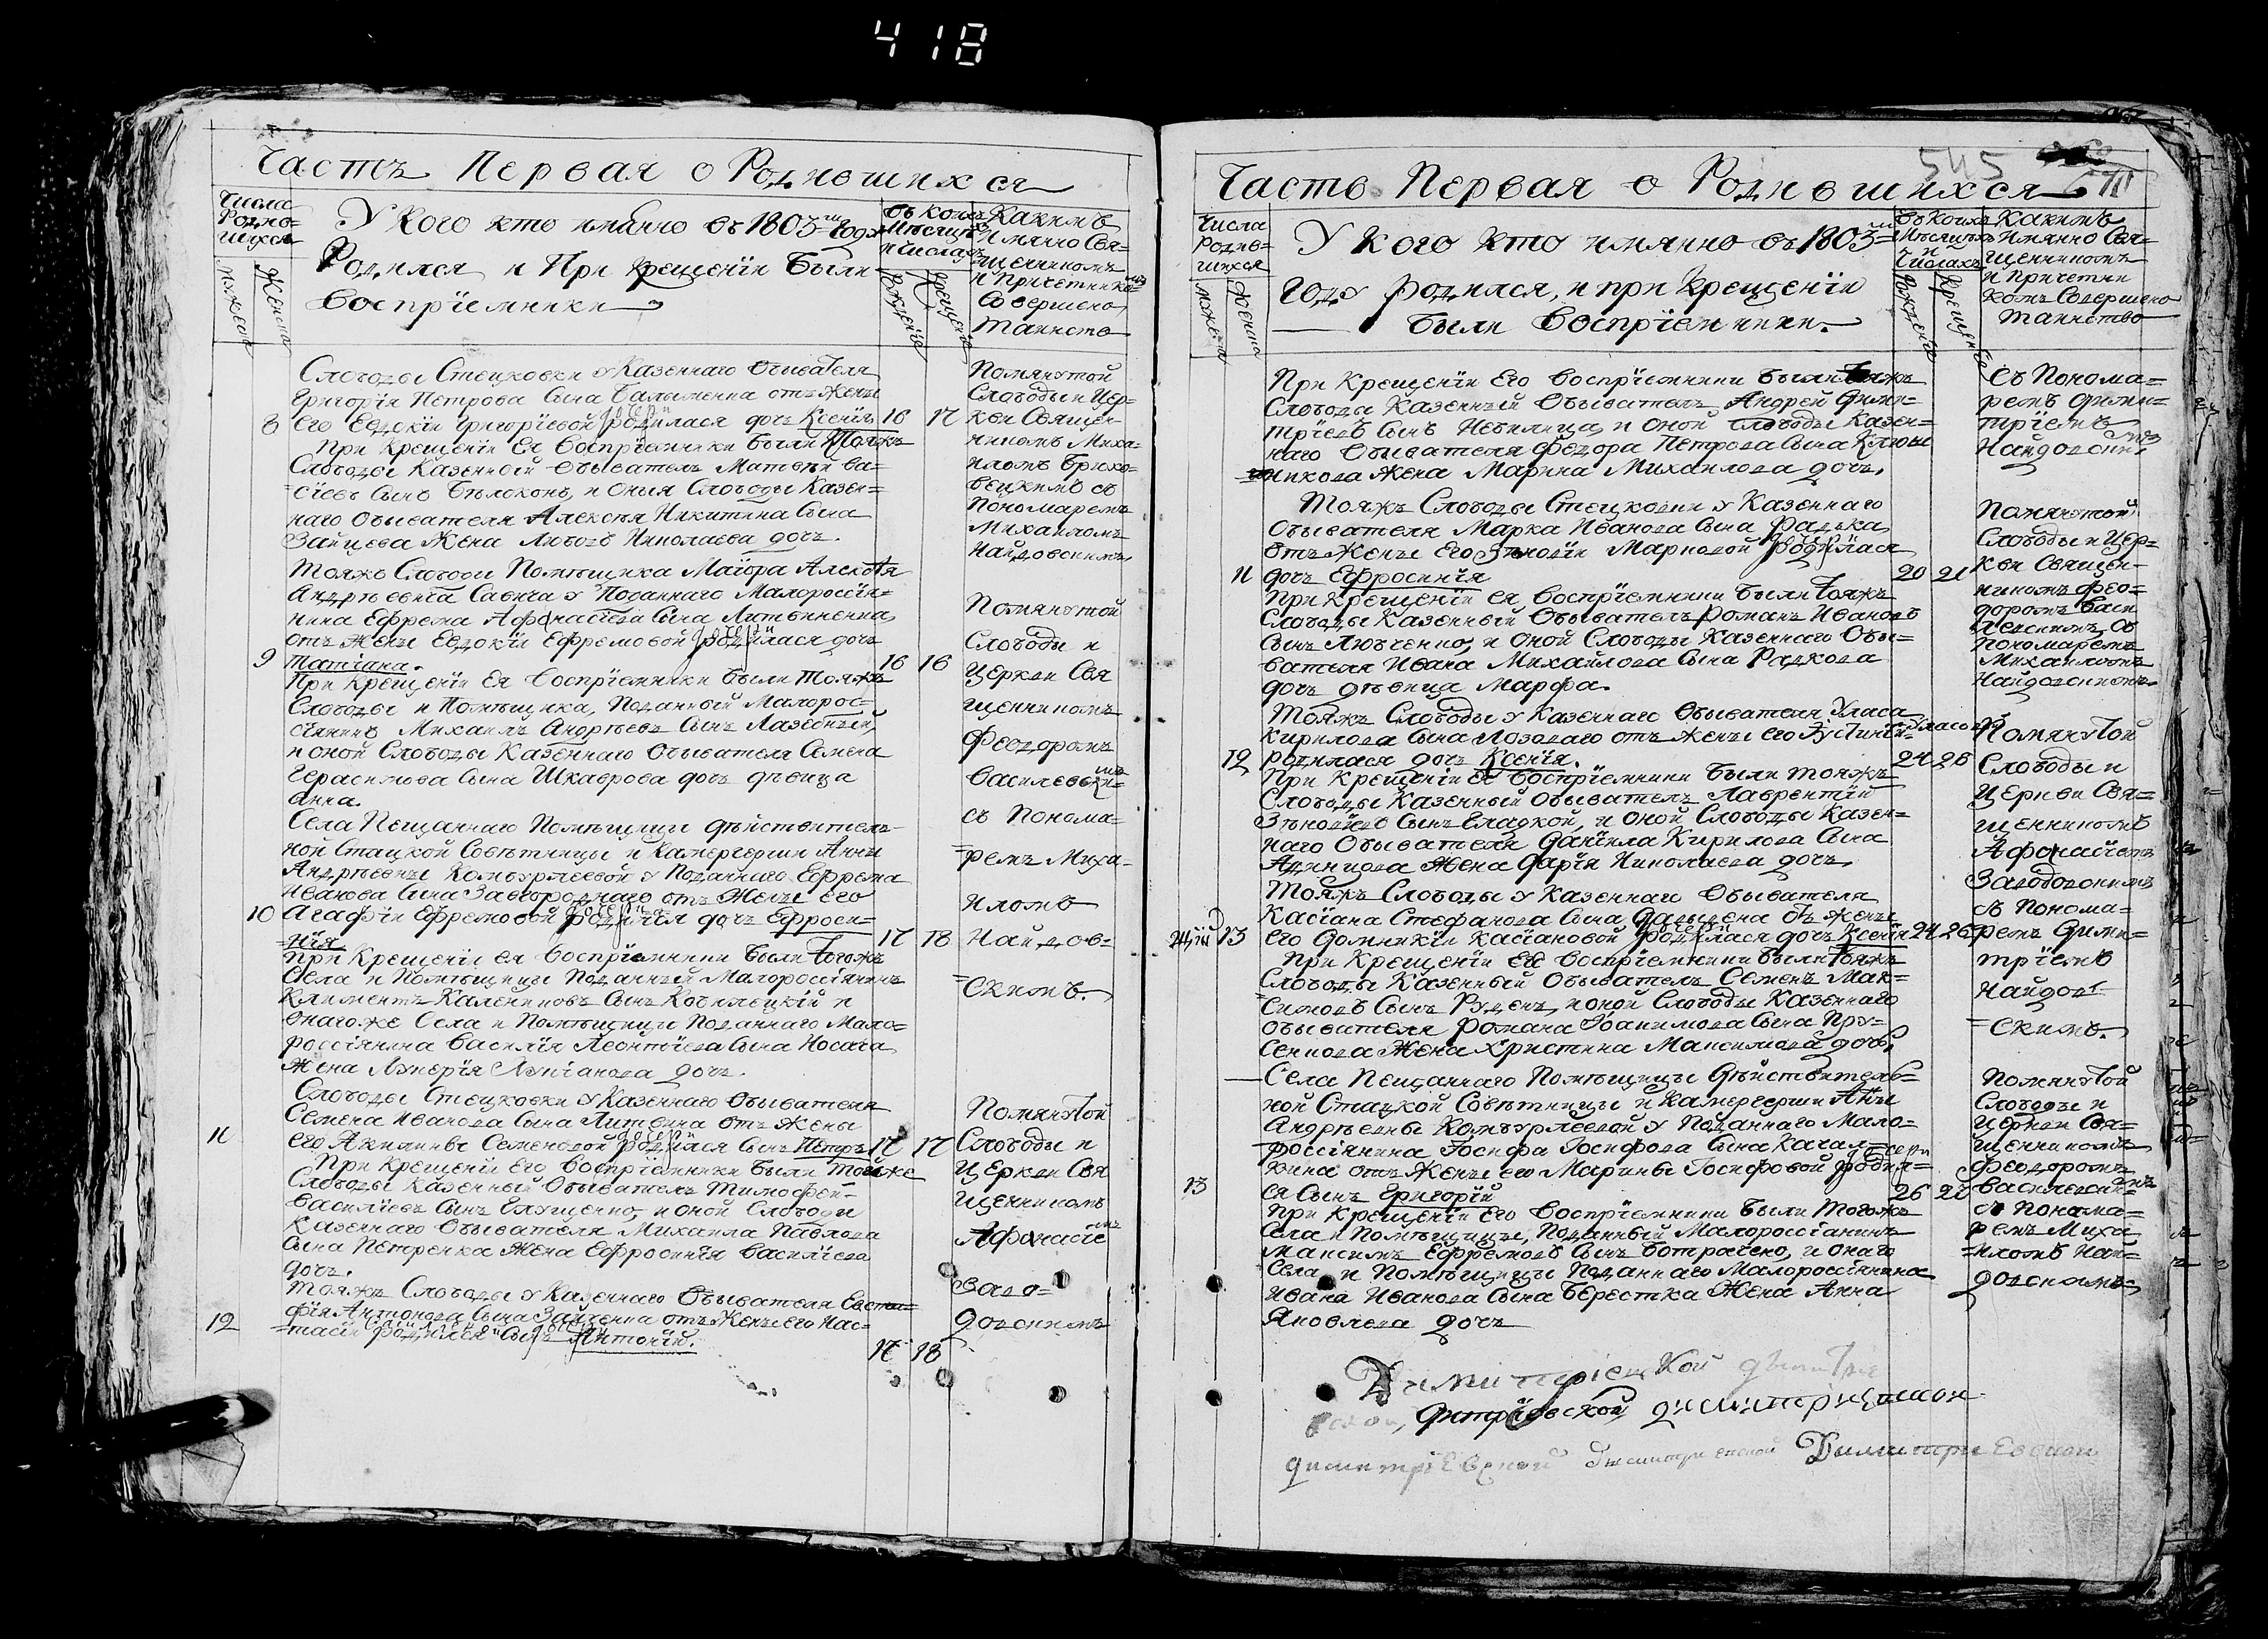 418
Часть Первая о Родившихся
Числа Родив=шихся
мужеска
Женска
У Кого кто имянно въ 1803=мъ Году
Родился и При крещеніи Были
Воспріемники
въ коихъ Мѣсяцѣ и числахъ
рожденіе
крещеніе
Какимъ имянно Свя=щенникомъ и Причетникомъ Совершено таинство
Слободы Стецковки у Казеннаго Обывателя
Григорія Петрова Сына Балыменка отъ Жены
8 его Евдокіи Григоріевой дочери родилася дочь Ксенія 16 17
При Крещеніи Ея Воспріемники были Тояжъ
Слободы Казенной Обыватель Матвѣй Ва=
=сіевъ Сынъ Бѣлоконь, и Оныя Слободы Казен=
наго Обывателя Алексѣя Никитина Сына
Зайцева Жена Любовь Николаева дочь.
Помянутой
Слободы и Цер=
кви Священ=
никомъ Миха=
иломъ
съ
Пономаремъ
Михаиломъ
Найдовскимъ
Тояжъ Слободы Помѣщика Маіора Алексѣя
Андрѣевича Савича у Поданнаго Малоросіи=
нина Ефрема Афонасіева Сына Литвиненка
отъ жены Евдокіи Ефремовой дочери родилася дочь
9 Татіана. 16 16
При Крещеніи Ея Воспріемники были Тояжъ
Слободы и Помѣщика, Поданный Малорос=
сіянинъ Михаилъ Андрѣевъ Сынъ Лазебный,
и оной Слободы Казеннаго Обывателя Семена
Герасимова Сына Шкаврова дочь дѣвица
Анна.
Помянутой
Слободы и
Церкви Свя
щенникомъ
Феодоромъ
Василевскимъ
съ Понома=
=ремъ Миха=
иломъ
Найдов=
=скимъ.
Села Пещаннаго Помѣщицы Дѣйствитель=
ной Стацкой Совѣтницы и Камергерши Анны
Андрѣевны Комбурлеевой у Поданнаго Ефрема
Иванова Сына Завгороднаго отъ Жены его
10 Агафіи Ефремовой дочери родилася дочь Ефроси=
=нія 17 18
При Крещеніи ея Воспріемники были Тогожъ
Села и Помѣщицы Поданный Малороссіянинъ
Климентъ Калениковъ Сынъ Кобилецкій и
Онагоже Села и Помѣщицы Поданнаго Мало=
россіянина Василія Леонтіева Сына Носача
Жена Лукерія Лукіанова дочь.
Слободы Стецковки у Казеннаго Обывателя
Семена Иванова Сына Литвина отъ Жены
11 его Акилины Семеновой дочери родился Сынъ Петръ 17 17
При Крещеніи Его Воспріемники были Тойже
Слободы Казенный Обыватель Тимофей
Василіевъ Сынъ Глущенко, и оной Слободы
Казеннаго Обывателя Михаила Павлова
Сына Петренка Жена Ефросинія Василіева
дочь.
Помянутой
Слободы и
Церкви Свя
щенникомъ
Афонасіемъ
Заво=
довскимъ
Тояжъ Слободы у Казеннаго Обывателя Евста=
фія Антонова Сына отъ Жены его Нас=
12 =тасіи родился Сынъ Антоній. 17 18
545
Часть Первая о Родившихся
Числа Родив=шихся
мужеска
Женска
У Кого кто имянно въ 1803=мъ
Году родился, и при крещеніи
были Воспріемники.
въ коихъ Мѣсяцѣхъ и Числахъ
рожденія
крещенія
Какимъ Имянно Свя=щенникомъ и Причетникомъ Совершено таинство
При Крещеніи Его Воспріемники были Тояжъ
Слободы Казенный Обыватель Андрей Дими=
тріевъ Сынъ Небилица, и Оной Слободы Казен=
наго Обывателя Федора Петрова Сына Клюш
=никова Жена Марина Михаилова дочь.
Съ Понома=
ремъ Дими=
тріемъ
Найдовскимъ
Тояжъ Слободы Стецковки у Казеннаго
Обывателя Марка Иванова Сына Радька
отъ Жены его Зѣновіи Марковой дочери родилася
11 дочь Ефросинія 20 21
При Крещеніи ея Воспріемники были Тояжъ
Слободы Казенный Обыватель Романъ Ивановъ
Сынъ Любченко, и Оной Слободы Казеннаго Обы=
вателя Ивана Михайлова Сына Радкова
дочь дѣвица Марфа.
Помянутой
Слободы и Цер=
кви Священ=
никомъ Фео=
доромъ Васи
левскимъ Съ
Пономаремъ
Михаиломъ
Найдовскимъ
Тояжъ Слободы у Казеннаго Обывателя Уласа
Кирилова Сына Лозоваго отъ Жены его Іустиніи Уласовой
12 родилася дочь Ксенія. 24 26
При Крещеніи Ея Воспріемники были тояжъ
Слободы Казенный Обыватель Лаврентій
Зѣновіевъ Сынъ Гладкой, и Оной Слободы Казен=
наго Обывателя Даніила Кирилова Сына
Жена Дарія Николаева дочь.
Помянутой
Слободы и
Церкви Свя=
щенникомъ
Афонасіемъ
Заводовскимъ
съ Понома=
ремъ Дими=
тріемъ
Найдов=
=скимъ.
Тояжъ Слободы у Казеннаго Обывателя
Касіана Стефанова Сына Давидена отъ жены
13 его Домникіи Касіановой дочери родилася дочь Ксенія 24 26
При Крещеніи Ея Воспріемники были Тояжъ
Слободы Казенный Обыватель Семенъ Мак=
симовъ Сынъ Руденъ, и оной Слободы Казеннаго
Обывателя Романа Іоакимова Сына Пру=
сенкова Жена Христина Максимова дочь.
Села Пещаннаго Помѣщицы Дѣйствитель=
ной Стацкой Совѣтницы и Камергерши Анны
Андрѣевны Комбурлеевой у Поданнаго Мало=
россіянина Іосифа Іосифова Сына Качал=
кина отъ Жены его Марины Іосифовой дочери родил=
13 ся Сынъ Григорій 26 27
При Крещеніи Его Воспріемники были Тогожъ
Села и Помѣщицы, Поданный Малороссіянинъ
Максимъ Ефремовъ Сынъ Ботраченко, и онаго
Села и Помѣщицы Поданнаго Малороссіянина
Ивана Иванова Сына Берестка Жена Анна
Яковлева дочь
Помянутой
Слободы и
Церкви Свя=
щенникомъ
Феодоромъ
Василевскимъ
съ Понома=
ремъ Миха
=иломъ Най=
довскимъ